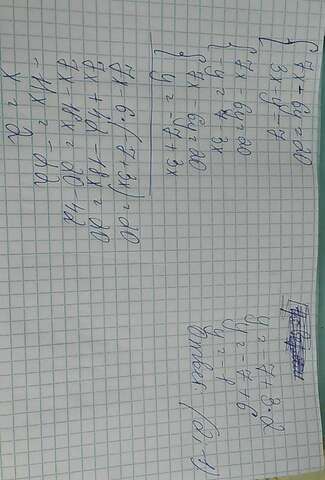 { 7x - 6y = 20
3x - y = 7
{ 7x - 6y = 20
-y = 7 - 3x
{ 7x - 6y = 20
y = -7 + 3x
7x - 6·(-7+3x) = 20
7x + 42 - 18x = 20
7x - 18x = 20 - 42
-11x = -22
x = 2
y = -7 + 3·2
y = -7 + 6
y = -1
Ответ: (2; -1)